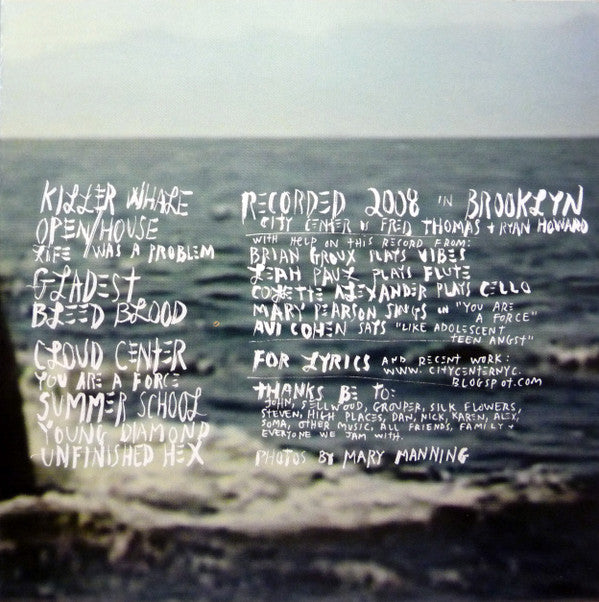 KILLER WHALE
OPEN/HOUSE
LIFE WAS A PROBLEM
GLADEST
BLEED BLOOD
CLOUD CENTER
YOU ARE A FORCE
SUMMER SCHOOL
YOUNG DIAMOND
UNFINISHED HEX
RECORDED 2008 IN BROOKLYN
CITY CENTER IS FRED THOMAS + RYAN HOWARD
WITH HELP ON THIS RECORD FROM:
BRIAN GROUX PLAYS VIBES
LEAH PAUL PLAYS FLUTE
COLETTE ALEXANDER PLAYS CELLO
MARY PEARSON SINGS ON "YOU ARE
A FORCE"
AVI COHEN SAYS "LIKE ADOLESCENT
TEEN ANGST"
FOR LYRICS AND RECENT WORK:
WWW.CITYCENTERNYC.
BLOGSPOT.COM
THANKS BE TO:
JOHN, SELLWOOD, GROUPER, SILK FLOWERS,
STEVEN, HIGH PLACES, DAN, NICK, KAREN, ALEX,
SOMA, OTHER MUSIC, ALL FRIENDS, FAMILY +
EVERYONE WE JAM WITH.
PHOTOS BY MARY MANNING